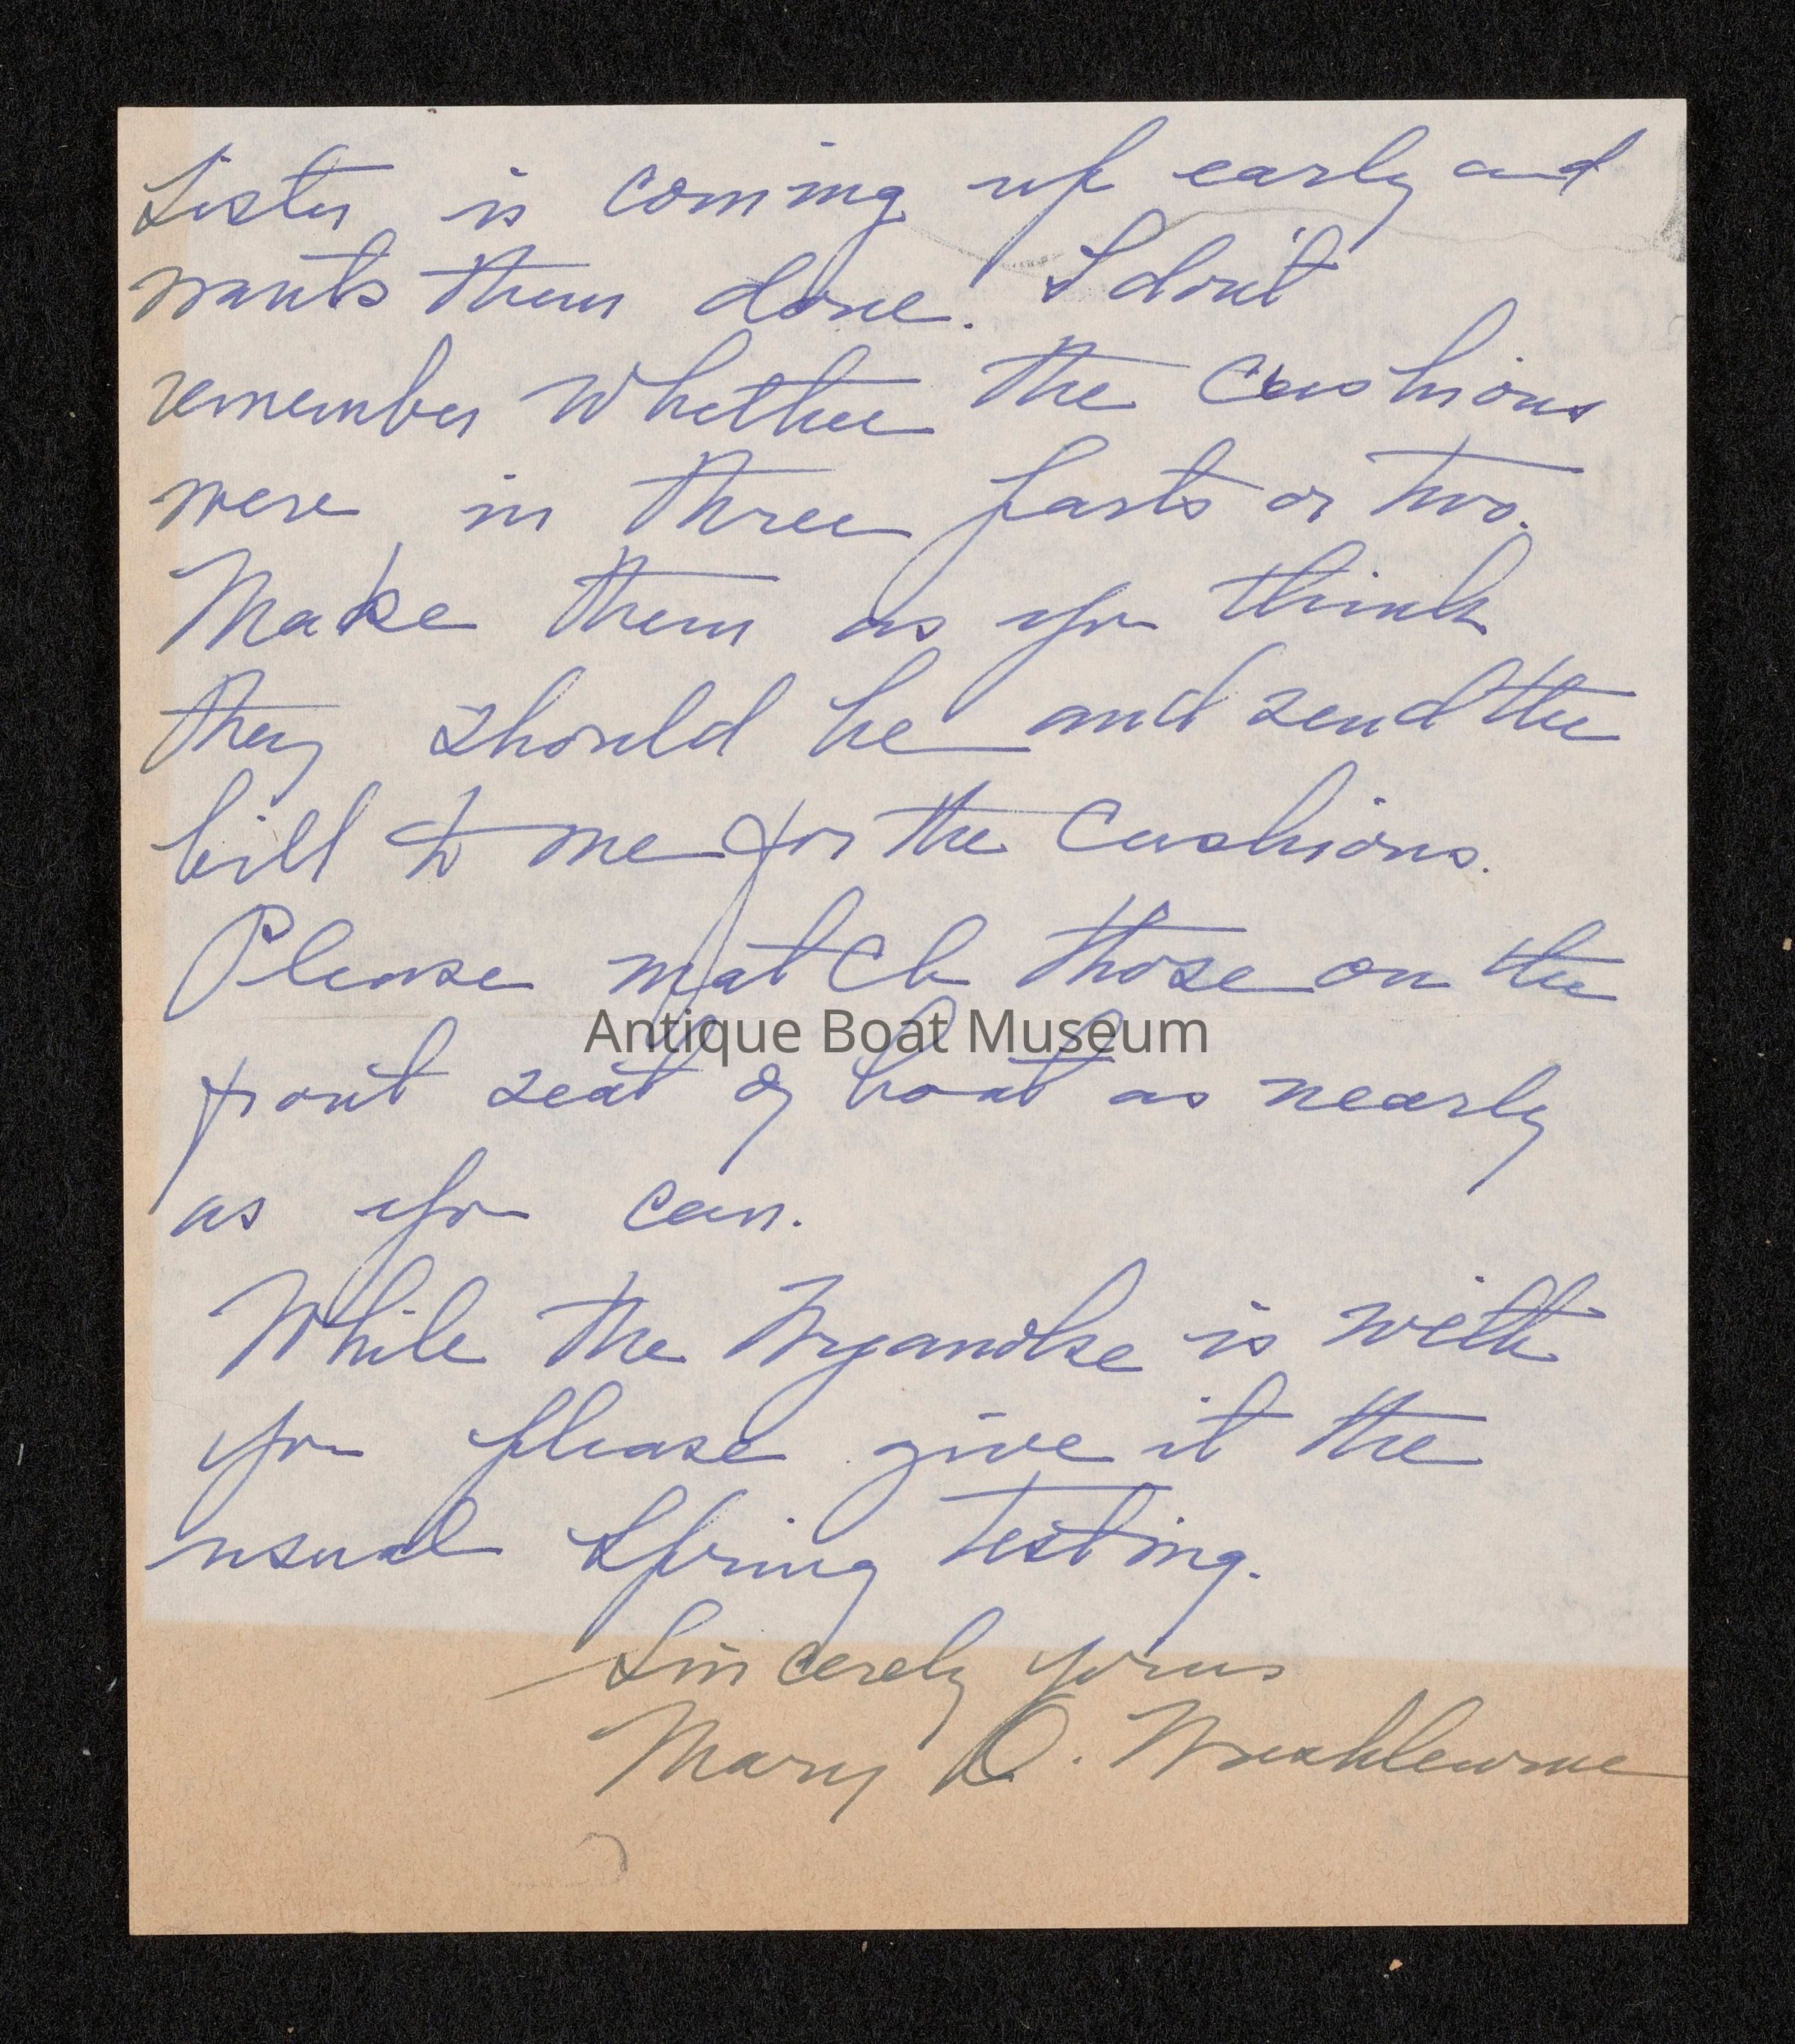 Sister is coming up early and
wants them done. I don't
remember whether the cushions
were in three parts or two.
Make them as you think
they should be and send the
bill to me for the cushions.
Please match those on the
Antique Boat Museum
front seat of boat as nearly
as you can.
While the Wyandke is with
you please give it the
usual Spring testing.
Sincerely yours
Mary D.